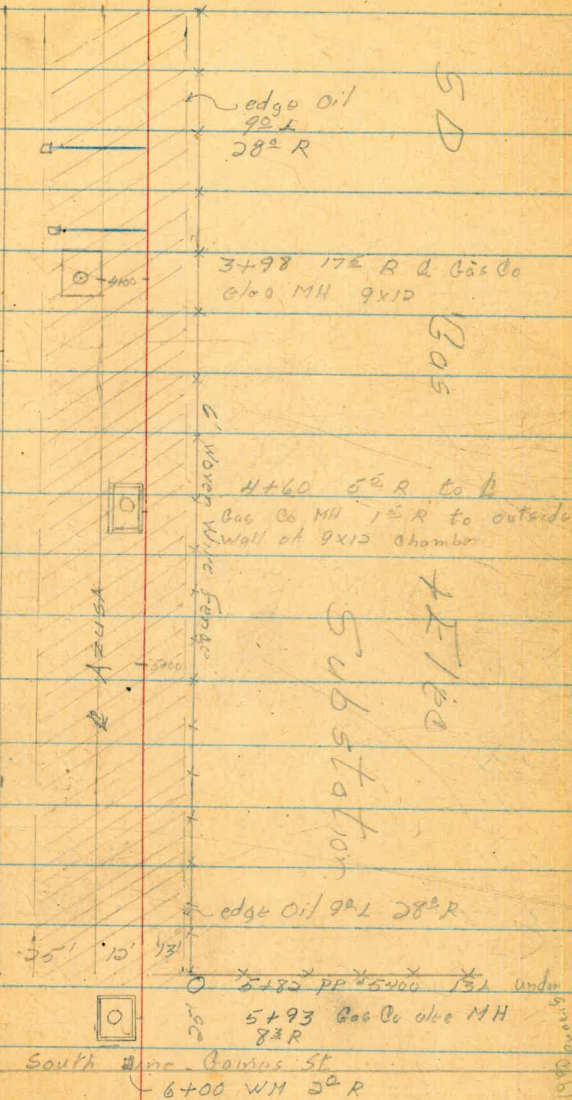 edge Oil
9⁰ L
28⁰ R
S D
3+98 17⁵ R ℄ Gas Co
elec MH 9x12
4+00
Gas
6' Woven Wire Fence
4+60 5⁵ R to ℄
Gas Co MH 1⁵ R to outside
Wall of 9x12 chamber
℄ AZUSA
5+00
+ Elec
Substation
edge Oil 9⁰ L 28⁰ R
25' 12' 13'
5+82 PP #5400 13 L under
5+93 Gas Co elec MH
8³ R
South Line St
6+00 WM 2⁰ R